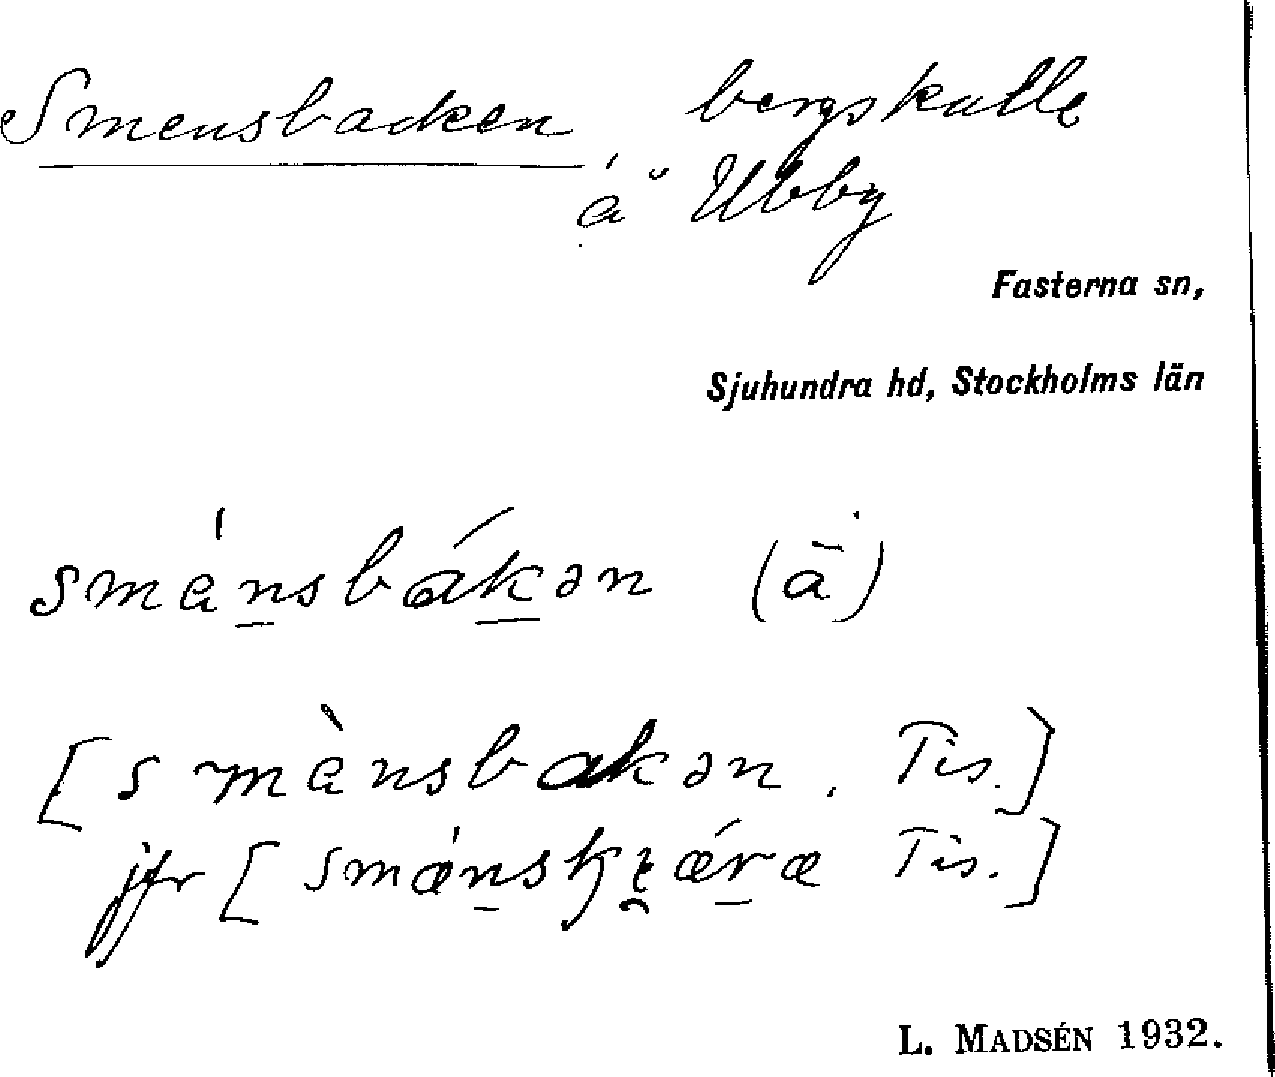 Smensbacken bergskulle
å Ubby
Fasterna sn,
Sjuhundra hd, Stockholms län
smánsbákən (ā̇)
[smènsbakən. Tis.]
jfr [smǽnskę̯ǽræ Tis.]
L. MADSÉN 1932.